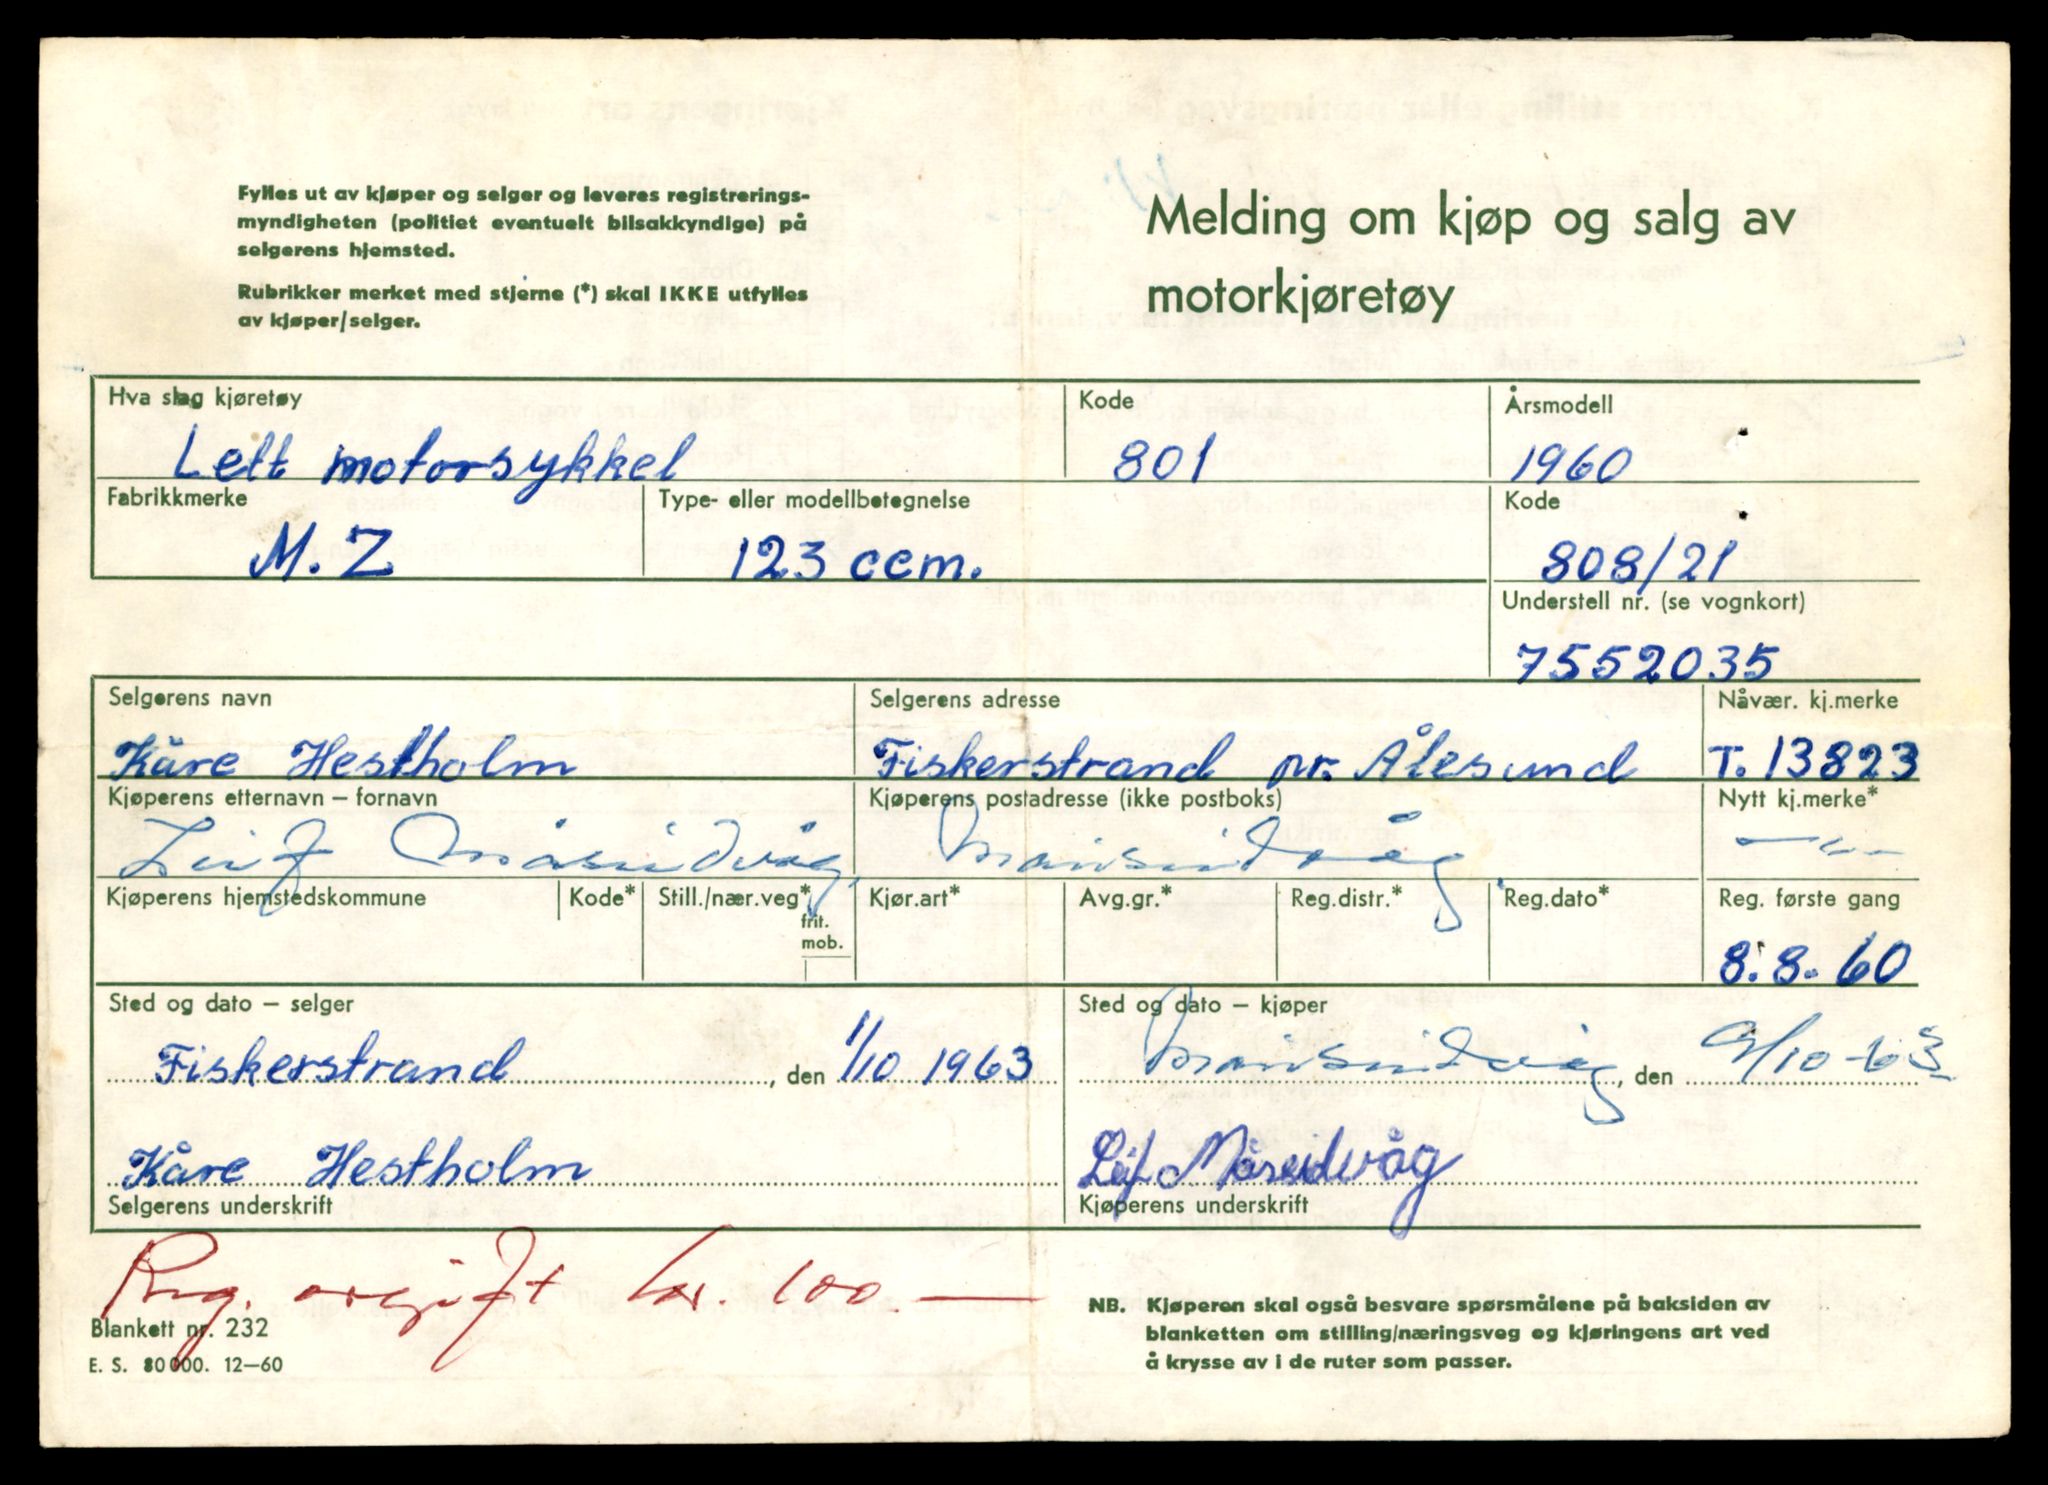 Fylles ut av kjøper og selger og leveres registrerings-
myndigheten (politiet eventuelt bilsakkyndige) på
selgerens hjemsted.
Rubrikker merket med stjerne (*) skal IKKE utfylles
av kjøper/selger.
Melding om kjøp og salg av
motorkjøretøy
Hva slag kjøretøy Kode Årsmodell
Lett motorsykkel 801 1960
Fabrikkmerke Type- eller modellbetegnelse Kode
M.Z 123 ccm. 808/21
Understell nr. (se vognkort)
7552035
Selgerens navn Selgerens adresse Nåvær. kj.merke
Kåre Hestholm Fiskerstrand pr. Ålesund T. 13823
Kjøperens etternavn – fornavn Kjøperens postadresse (ikke postboks) Nytt kj.merke*
Leif Måseidvåg, Mauseidvåg — " —
Kjøperens hjemstedskommune Kode* Still./nær.veg* Kjør.art* Avg.gr.* Reg.distr.* Reg.dato* Reg. første gang
frit.
mob.
8.8.60
Sted og dato – selger Sted og dato – kjøper
Fiskerstrand, den 1/10 1963 Mauseidvåg, den 9/10-63
Kåre Hestholm Leif Måseidvåg
Selgerens underskrift Kjøperens underskrift
Reg. avgift kr. 100.—
Blankett nr. 232
E. S. 80 000. 12–60
NB. Kjøperen skal også besvare spørsmålene på baksiden av
blanketten om stilling/næringsveg og kjøringens art ved
å krysse av i de ruter som passer.